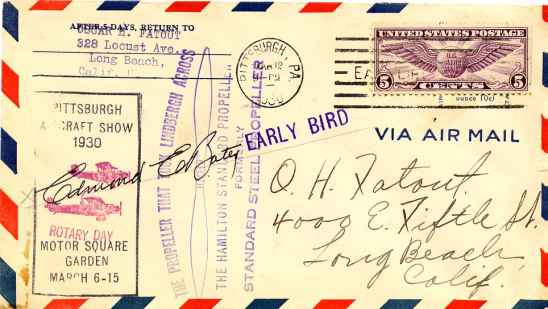 AFTER 5 DAYS, RETURN TO
OSCAR H. FATOUT
328 Locust Ave.
Long Beach,
Calif.
PITTSBURGH
PA.
1930
UNITED STATES POSTAGE
5 CENTS 5
PITTSBURGH
AIRCRAFT SHOW
1930
ROTARY DAY
MOTOR SQUARE
GARDEN
MARCH 6-15
Edmond E Bates
THE PROPELLER THAT TOOK LINDBERGH ACROSS
THE HAMILTON STANDARD PROPELLER
FORMERLY
STANDARD STEEL PROPELLER
EARLY BIRD
VIA AIR MAIL
O. H. Fatout.
4000 E. Fiftle St.
Long Beach
Calif.